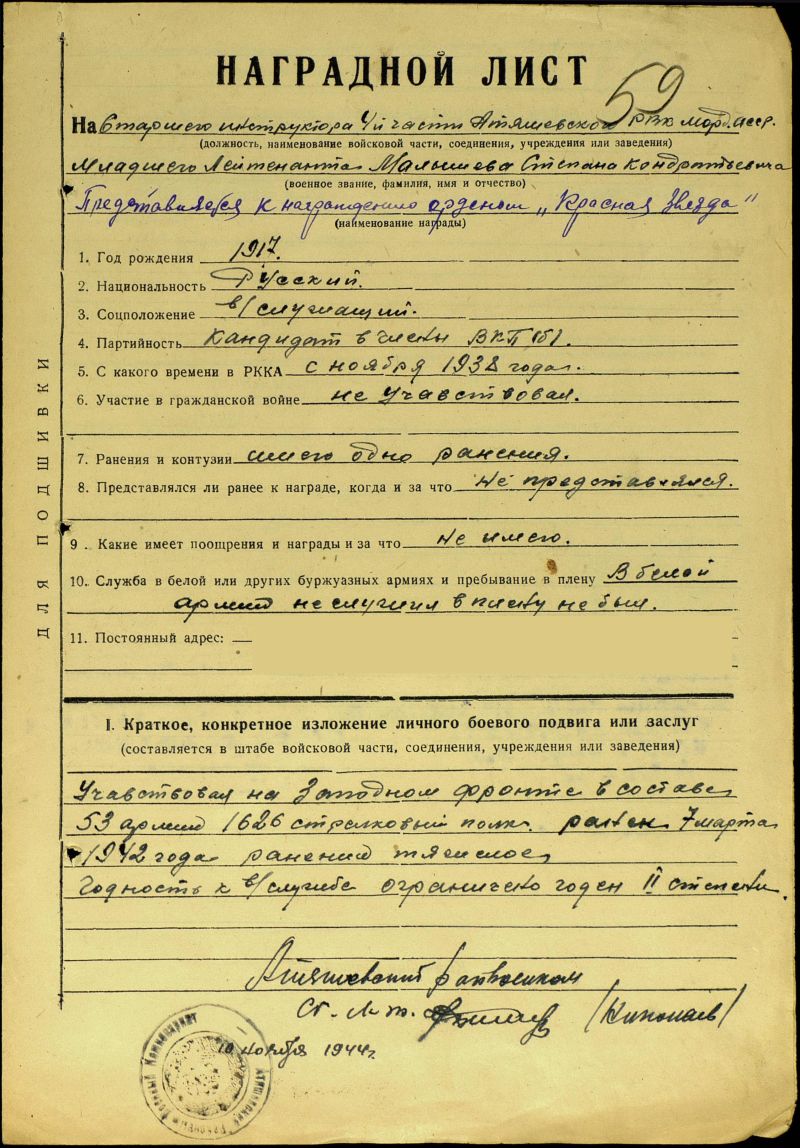 НАГРАДНОЙ ЛИСТ
59
На Старшего инструктора 4й части Атяшевского РВК Морд. АССР.
(должность, наименование войсковой части, соединения, учреждения или заведения)
Младшего Лейтенанта Малышева Степана Кондратьевича
(военное звание, фамилия, имя и отчество)
Представляется к награждению орденом „Красная Звезда"
(наименование награды)
1. Год рождения 1917.
2. Национальность Русский.
3. Соцположение в/служащий.
4. Партийность кандидат в члены ВКП(б).
5. С какого времени в РККА с ноября 1938 года.
6. Участие в гражданской войне не учавствовал.
7. Ранения и контузии имею одно ранения.
8. Представлялся ли ранее к награде, когда и за что не представлялся.
9. Какие имеет поощрения и награды и за что не имею.
10. Служба в белой или других буржуазных армиях и пребывание в плену В белой
армии не служил в плену не был.
11. Постоянный адрес:
I. Краткое, конкретное изложение личного боевого подвига или заслуг
(составляется в штабе войсковой части, соединения, учреждения или заведения)
Учавствовал на Западном фронте в составе
53 армии 1626 стрелковый полк. ранен 7 марта
1942 года ранений тяжелое,
Годность к в/службе ограничено годен II степени.
Атяшевский райвоенком
Ст. л-т. (Николаев)
10 ноября 1944 г.
ДЛЯ ПОДШИВКИ
Атяшевский Районный Военный Комиссариат